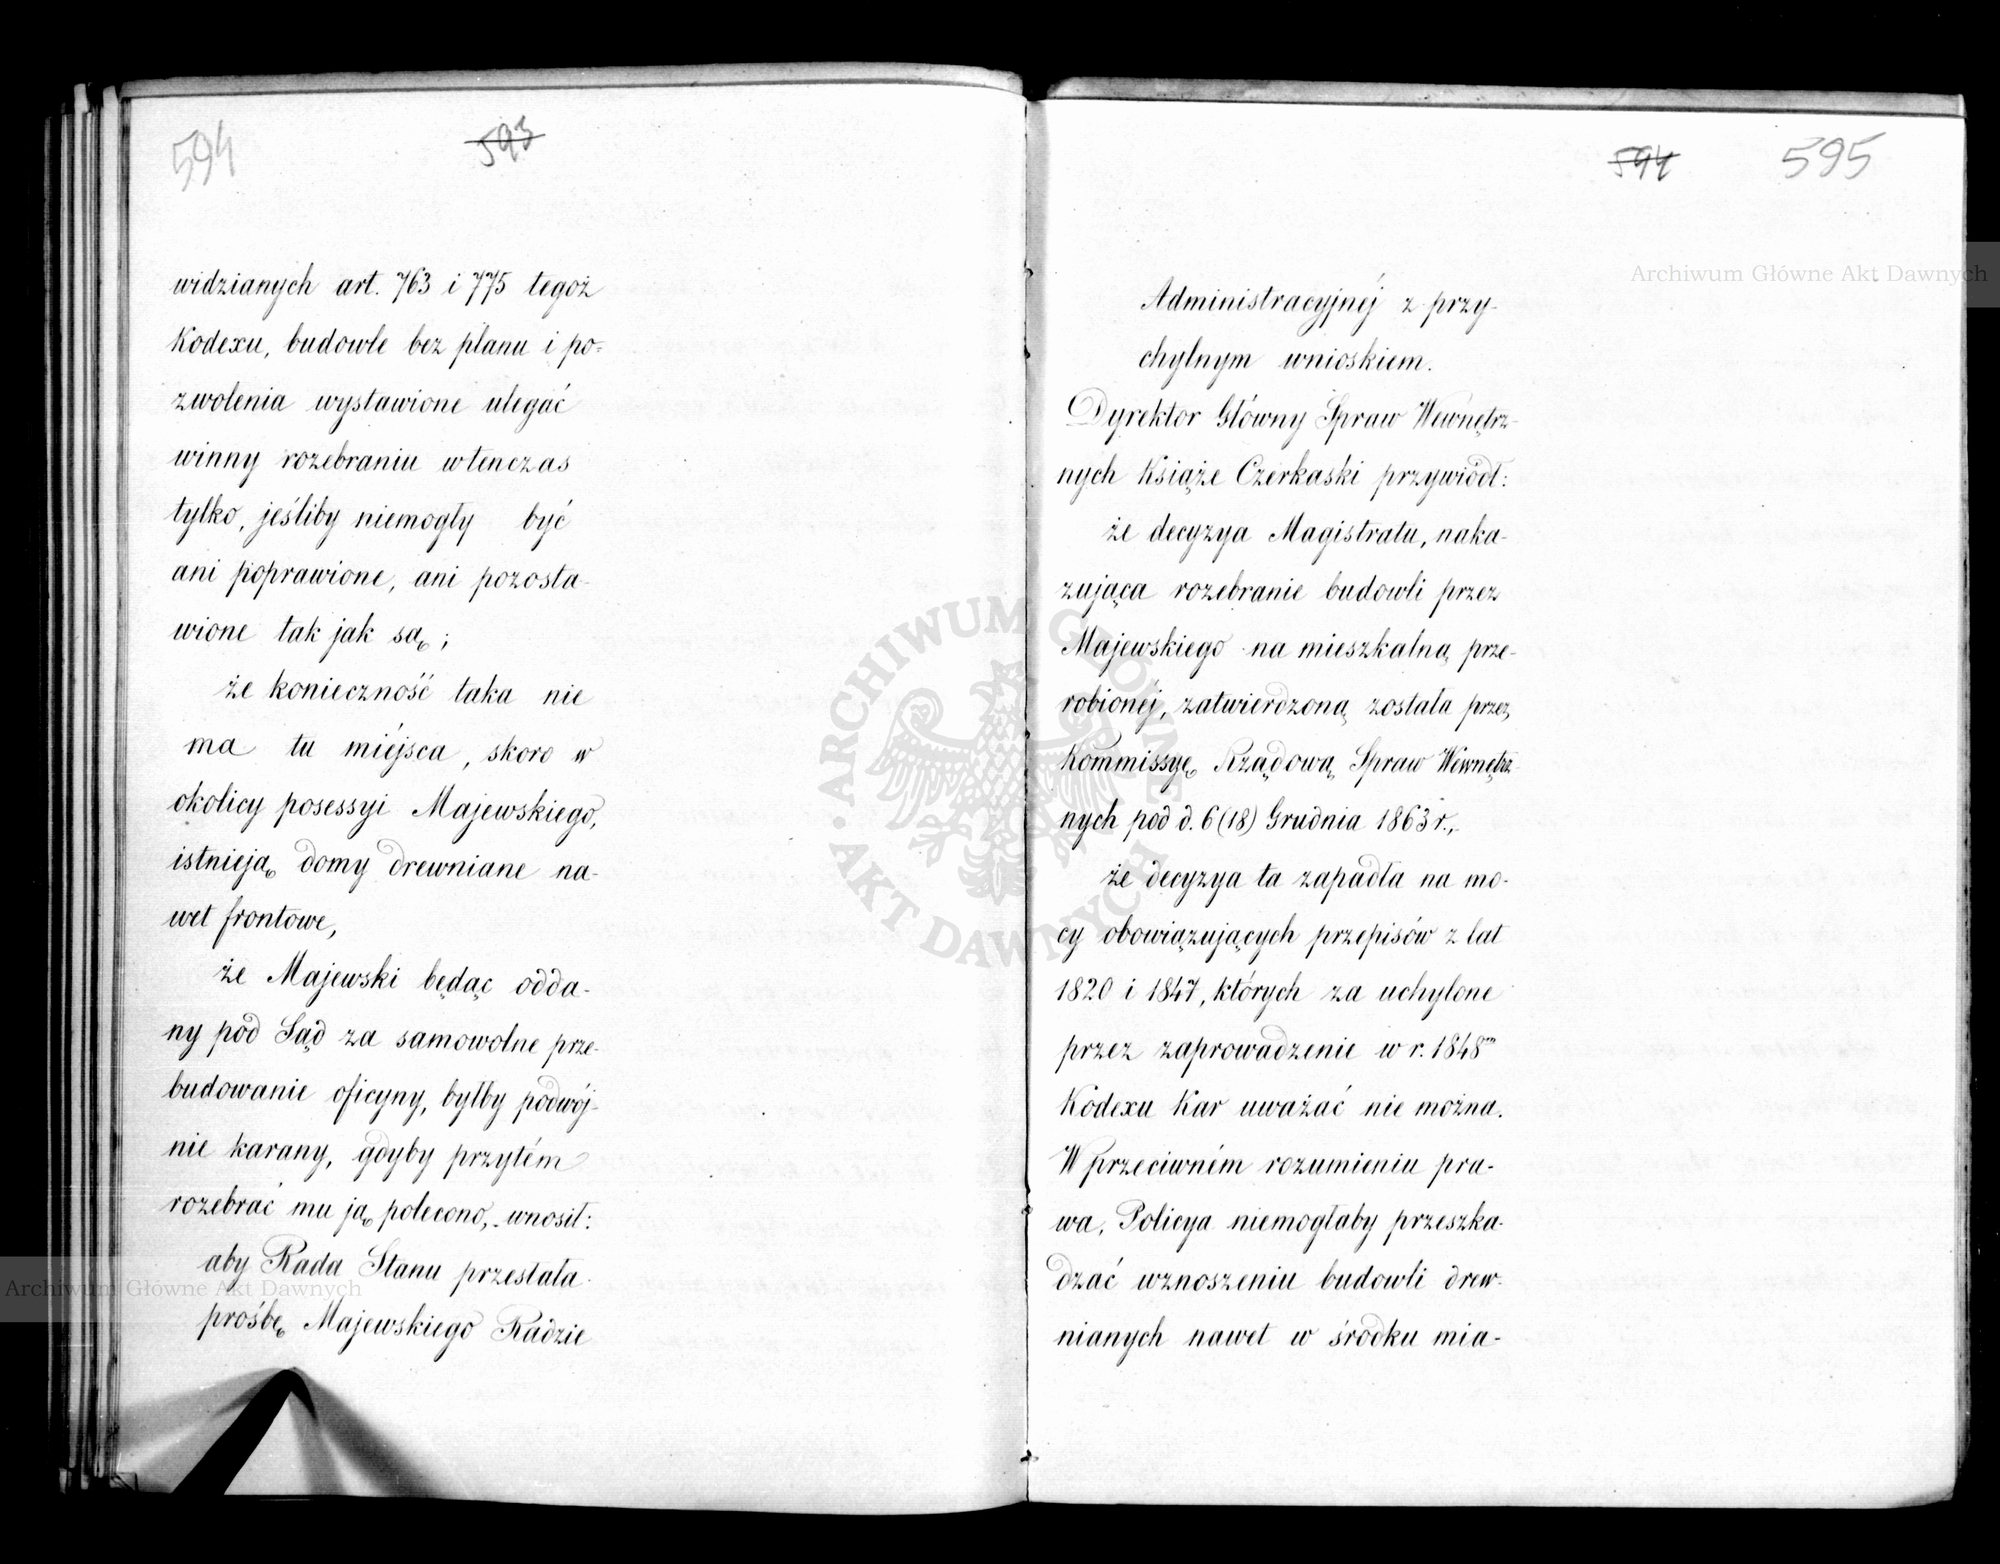 594
593
widzianych art. 763 i 775 tegoż
Kodexu, budowle bez planu i po=
zwolenia wystawione ulegać
winny rozebraniu wtenczas
tylko, jeśliby niemogły być
ani poprawione, ani pozosta-
wione tak jak są;
że konieczność taka nie
ma tu miéjsca, skoro w
okolicy posessyi Majewskiego,
istnieją domy drewniane na-
wet frontowe,
że Majewski będąc odda-
ny pod Sąd za samowolne prze-
budowanie oficyny, byłby podwój-
nie karany, gdyby przytém
rozebrać mu ją polecono, wnosił:
aby Rada Stanu przesłała
prośbę Majewskiego Radzie
594
595
Administracyjnéj z przy-
chylnym wnioskiem.
Dyrektor Główny Spraw Wewnętrz-
nych Książe Czerkaski przywiódł:
że decyzya Magistratu, naka-
zująca rozebranie budowli przez
Majewskiego na mieszkalną prze-
robionéj, zatwierdzoną została przez
Kommissyę Rządową Spraw Wewnętrz-
nych pod d. 6 (18) Grudnia 1863 r.,
że decyzya ta zapadła na mo-
cy obowiązujących przepisów z lat
1820 i 1847, których za uchylone
przez zaprowadzenie w r. 1848ᵐ
Kodexu Kar uważać nie można.
W przeciwném rozumieniu pra-
wa, Policya niemogłaby przeszka-
dzać wznoszeniu budowli drew-
nianych nawet w środku mia-
Archiwum Główne Akt Dawnych
Archiwum Główne Akt Dawnych
ARCHIWUM GŁÓWNE · AKT DAWNYCH ·